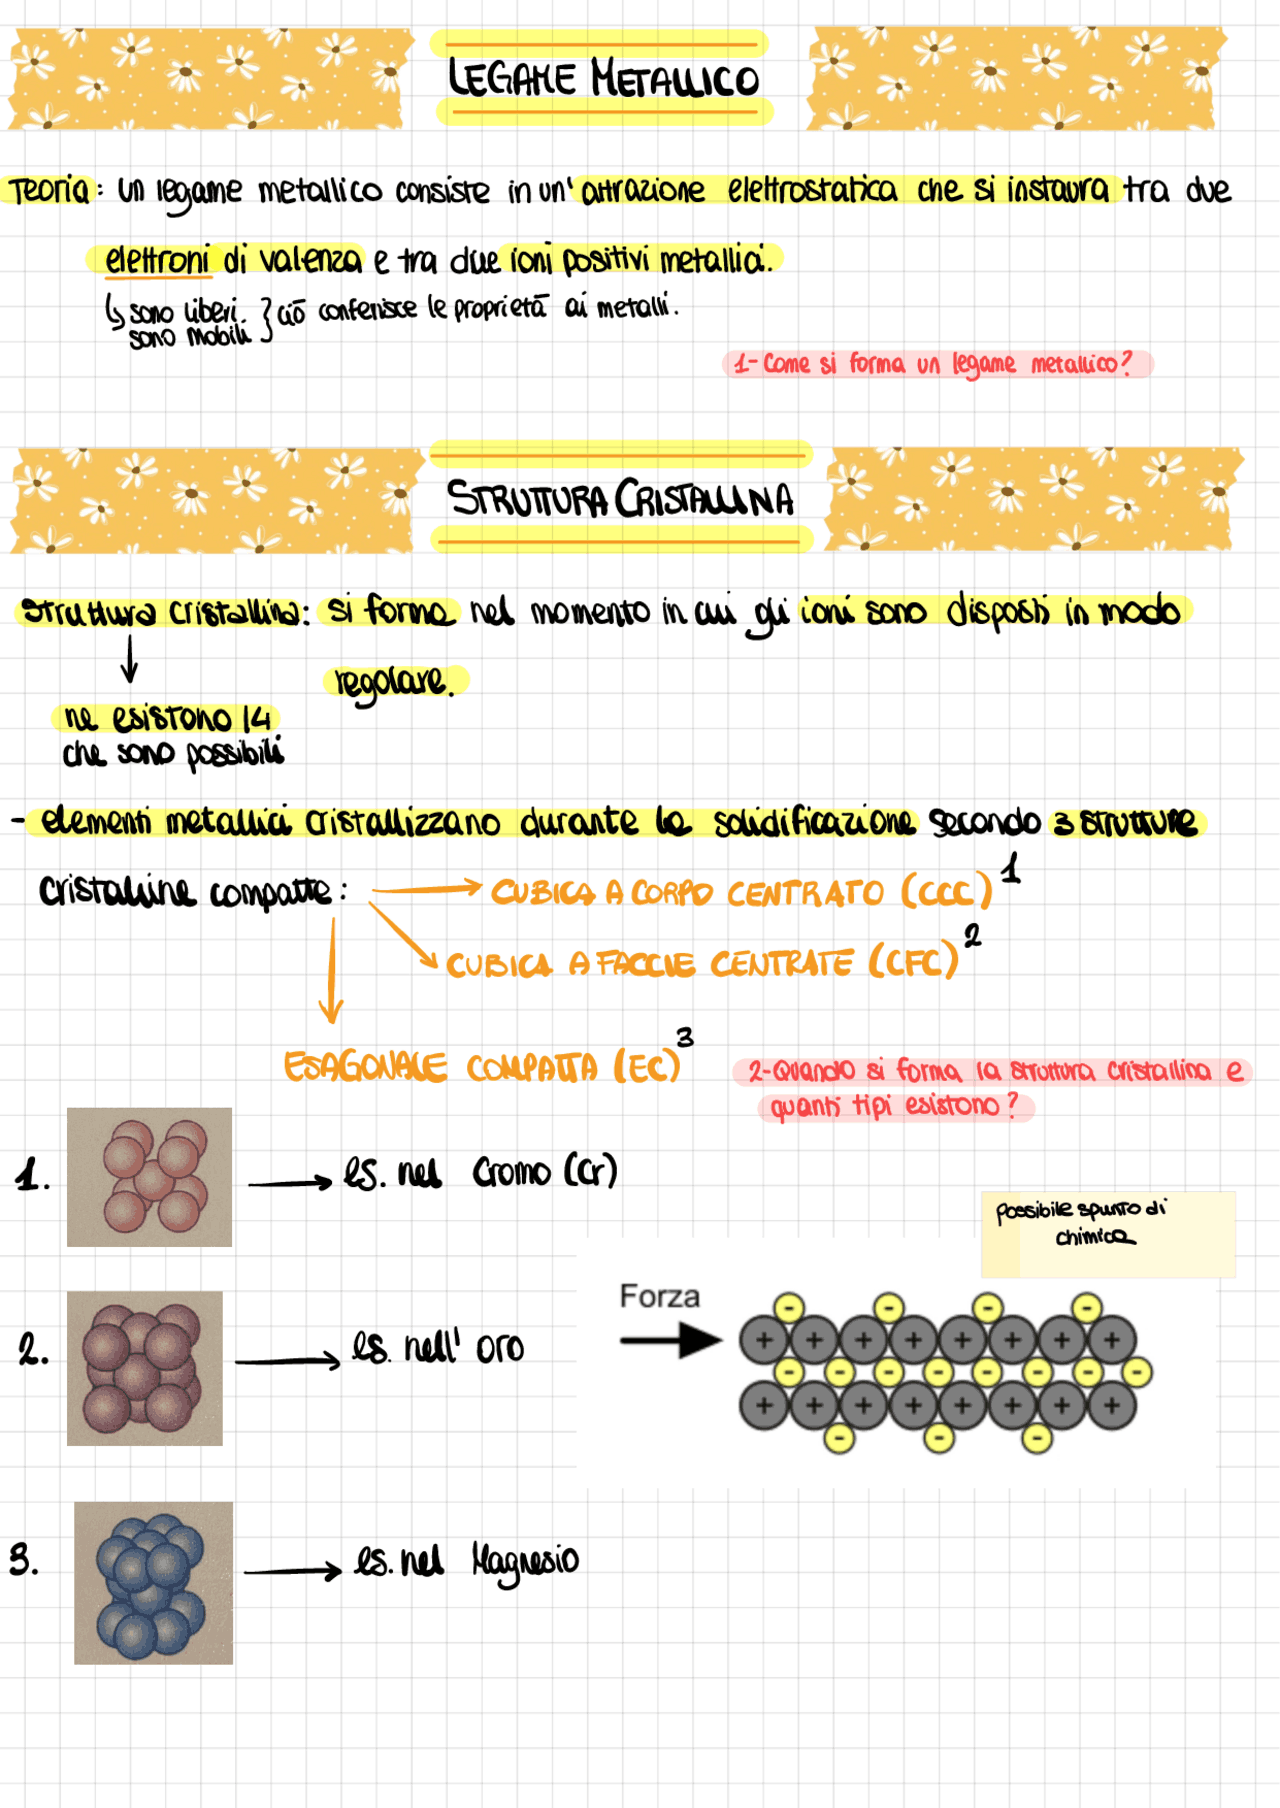 LEGAME METALLICO
Teoria: un legame metallico consiste in un' attrazione elettrostatica che si instaura tra due
elettroni di valenza e tra due ioni positivi metallici.
↳ sono liberi. } ciò conferisce le proprietà ai metalli.
sono mobili
1- Come si forma un legame metallico?
STRUTTURA CRISTALLINA
Struttura cristallina: si forma nel momento in cui gli ioni sono disposti in modo
regolare.
ne esistono 14
che sono possibili
- elementi metallici cristallizzano durante la solidificazione secondo 3 strutture
cristalline compatte: CUBICA A CORPO CENTRATO (CCC) 1
CUBICA A FACCIE CENTRATE (CFC) 2
ESAGONALE COMPATTA (EC) 3
2- Quando si forma la struttura cristallina e
quanti tipi esistono?
1. es. nel Cromo (Cr)
possibile spunto di
chimica
Forza
2. es. nell' oro
+ + + + + + + +
+ + + + + + + +
- - - -
- - - - - - - -
- - -
3. es. nel Magnesio